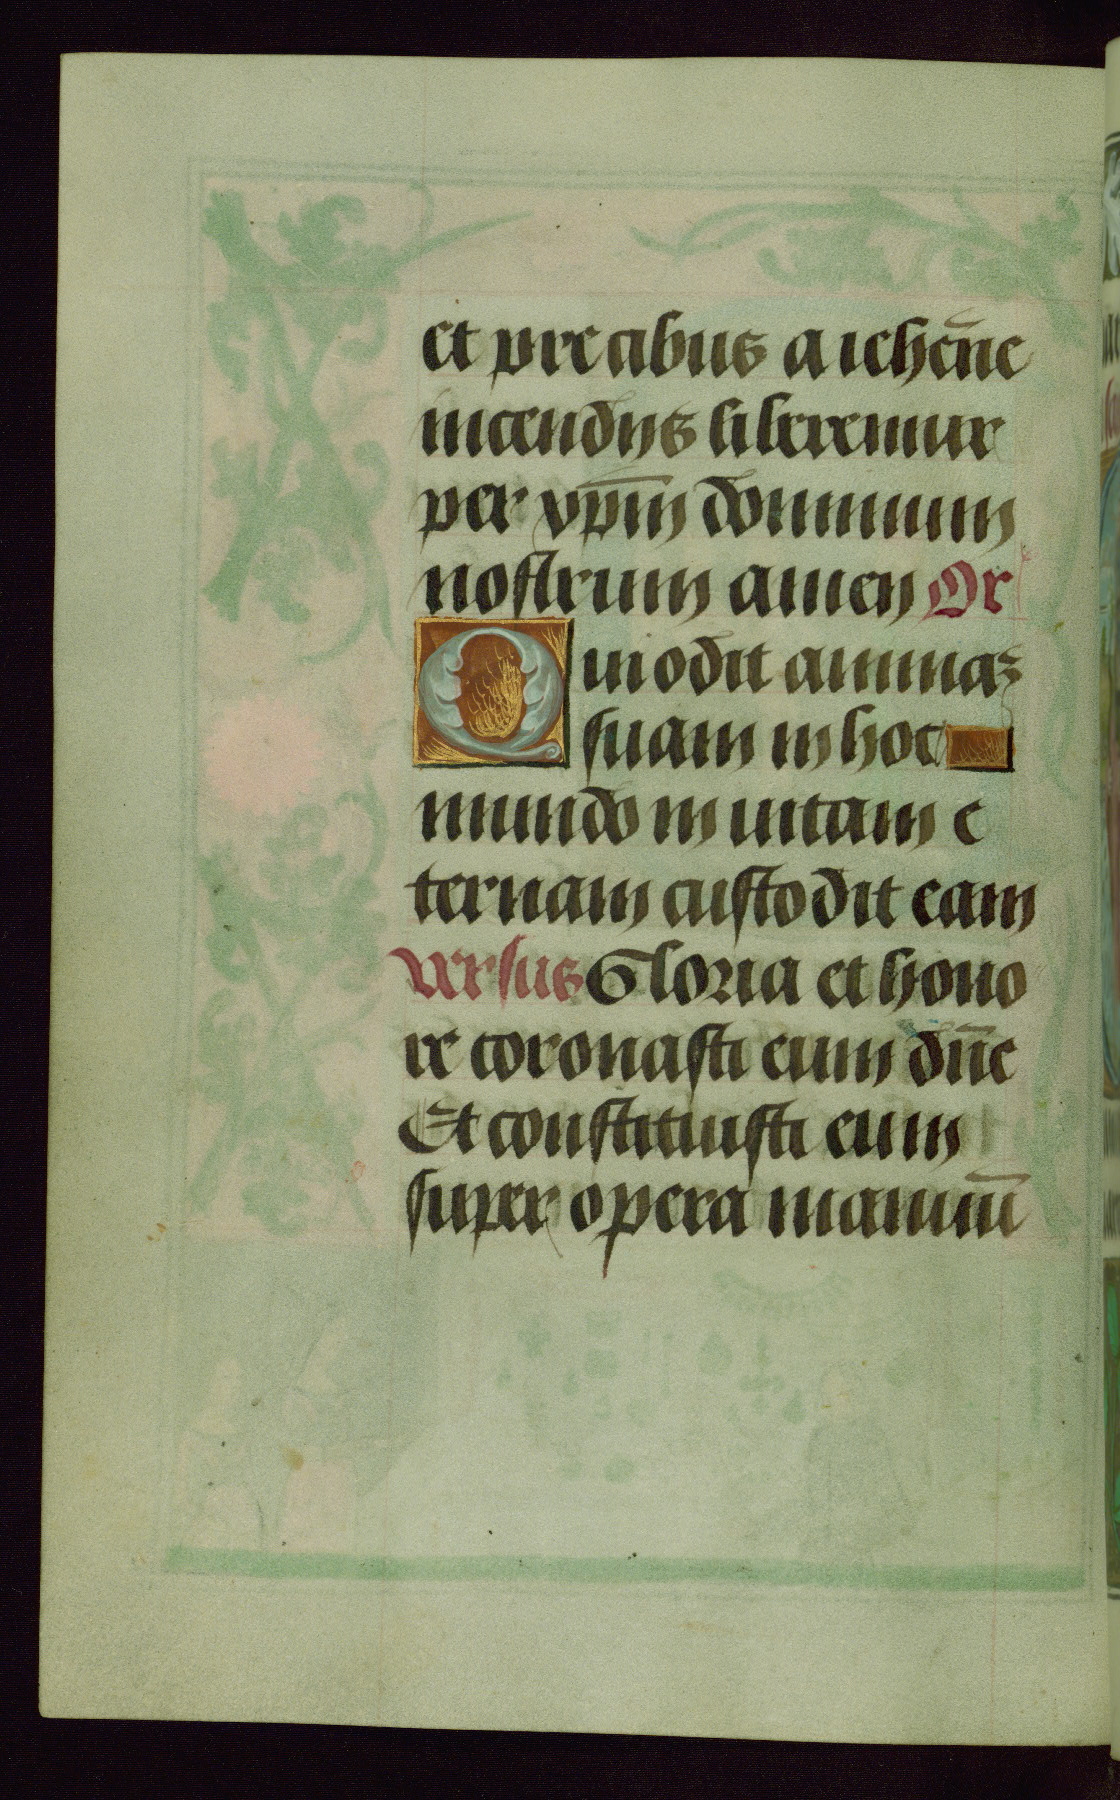 et precibus a iehēne
incendijs liberemur
per xpm̄ dominum
nostrum amen Or
Qui odit animaz
suam in hoc
mundo in uitam e
ternam custodit eam
Versus Gloria et hono
re coronasti eum dn̄e
Et constituisti eum
super opera manuū